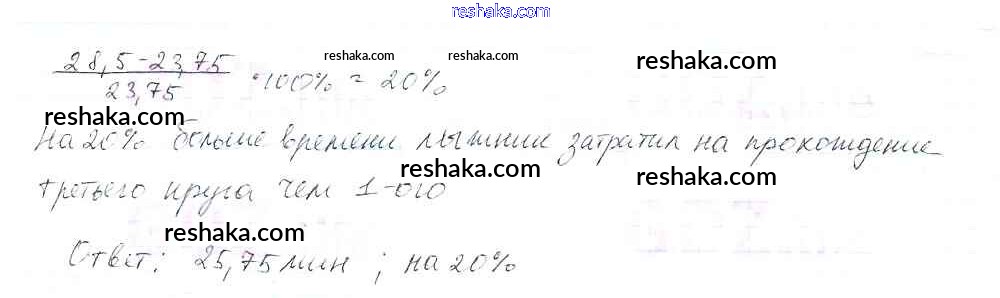 reshaka.com
28,5-23,75 reshaka.com reshaka.com reshaka.com
23,75 · 100% = 20%
reshaka.com
На 20% больше времени лыжник затратил на прохождение
reshaka.com reshaka.com
третьего круга чем 1-ого
reshaka.com
Ответ: 25,75 мин ; на 20%